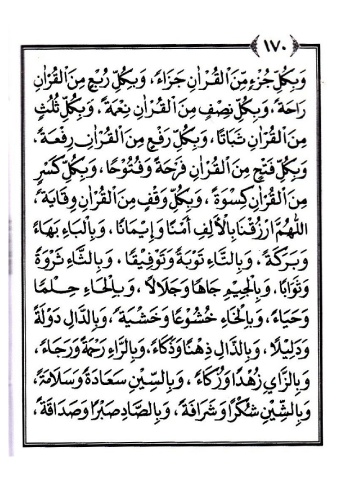 ﴿١٧٠﴾
وَبِكُلِّ جُزْءٍ مِّنَ الْقُرْاٰنِ جَزَاءً، وَبِكُلِّ رُبْعٍ مِنَ الْقُرْاٰنِ
رَاحَةً، وَبِكُلِّ نِصْفٍ مِنَ الْقُرْاٰنِ نِعْمَةً، وَبِكُلِّ ثُلُثٍ
مِنَ الْقُرْاٰنِ ثَبَاتًا، وَبِكُلِّ رَفْعٍ مِنَ الْقُرْاٰنِ رِفْعَةً،
وَبِكُلِّ فَتْحٍ مِنَ الْقُرْاٰنِ فَرْحَةً وَفُتُوْحًا، وَبِكُلِّ كَسْرٍ
مِنَ الْقُرْاٰنِ كِسْوَةً، وَبِكُلِّ وَقْفٍ مِنَ الْقُرْاٰنِ وِقَايَةً،
اَللّٰهُمَّ ارْزُقْنَا بِالْاَلِفِ اَمْنًا وَاِيْمَانًا، وَبِالْبَاءِ بَهَاءً
وَبَرَكَةً، وَبِالتَّاءِ تَوْبَةً وَتَوْفِيْقًا، وَبِالثَّاءِ ثَرْوَةً
وَثَوَابًا، وَبِالْجِيْمِ جَاهًا وَجَلَالًا، وَبِالْحَاءِ حِلْمًا
وَحَيَاءً، وَبِالْخَاءِ خُشُوْعًا وَخَشْيَةً، وَبِالدَّالِ دَوْلَةً
وَدَلِيْلًا، وَبِالذَّالِ ذِهْنًا وَذَكَاءً، وَبِالرَّاءِ رَحْمَةً وَرَجَاءً،
وَبِالزَّايِ زُهْدًا وَزَكَاءً، وَبِالسِّيْنِ سَعَادَةً وَسَلَامَةً،
وَبِالشِّيْنِ شُكْرًا وَشَرَافَةً، وَبِالصَّادِ صَبْرًا وَصَدَاقَةً،